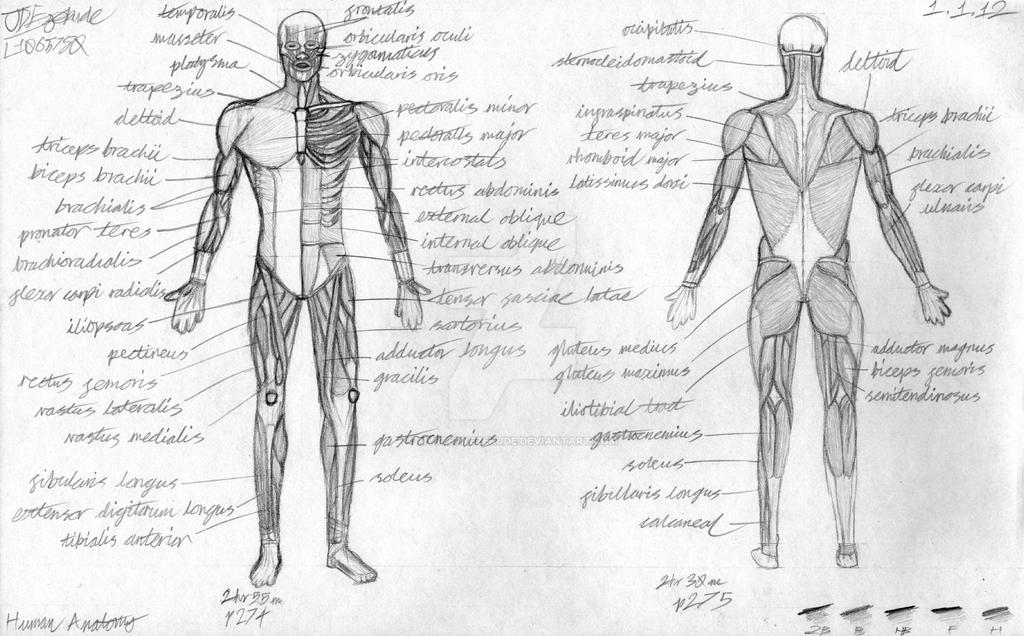 L1065790
1.1.12
temporalis
masseter
platysma
trapezius
deltoid
triceps brachii
biceps brachii
brachialis
pronator teres
brachioradialis
flexor carpi radialis
iliopsoas
pectineus
rectus femoris
vastus lateralis
vastus medialis
fibularis longus
extensor digitorum longus
tibialis anterior
frontalis
orbicularis oculi
zygomaticus
orbicularis oris
pectoralis minor
pectoralis major
intercostals
rectus abdominis
external oblique
internal oblique
transversus abdominis
tensor fasciae latae
sartorius
adductor longus
gracilis
gastrocnemius
soleus
2hr 55m
p274
occipitalis
sternocleidomastoid
trapezius
infraspinatus
teres major
rhomboid major
latissimus dorsi
gluteus medius
gluteus maximus
iliotibial tract
gastrocnemius
soleus
fibillaris longus
calcaneal
deltoid
triceps brachii
brachialis
flexor carpi
ulnaris
adductor magnus
biceps femoris
semitendinosus
2hr 30m
p275
Human Anatomy
2B B HB F H